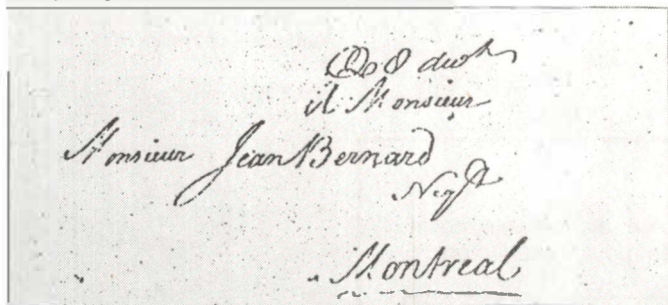 8 dwt
A Monsieur
Monsieur Jean Bernard
Negt
Montreal